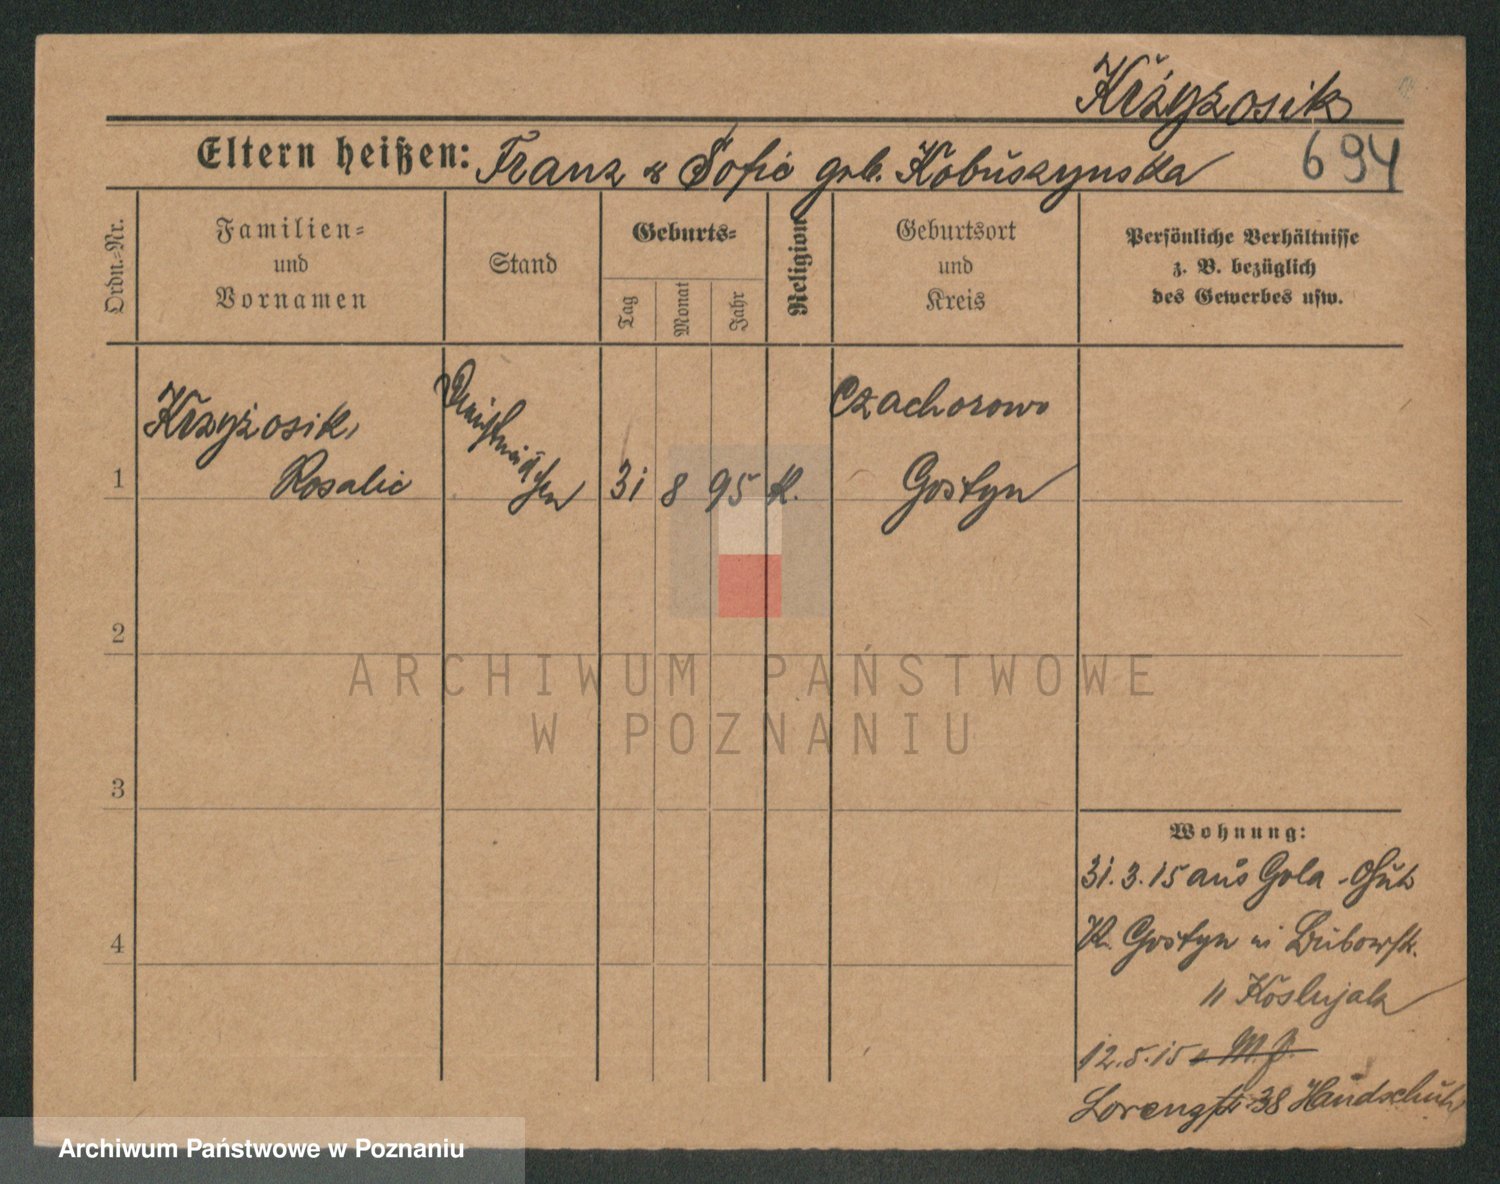 Kržyžosik
Eltern heißen: Franz & Sofie geb. Kobuszynska 694
Ordn.-Nr.
Familien-
und
Vornamen
Stand
Geburts-
Tag
Monat
Jahr
Religion
Geburtsort
und
Kreis
Persönliche Verhältnisse
z. B. bezüglich
des Gewerbes usw.
Krzyżosik,
Rosalie
Dienstmäd
chen
Czachorowo
1 31 8 95 K. Gostyn
2
ARCHIWUM PAŃSTWOWE
W POZNANIU
3
4
Wohnung:
31.3.15 aus Gola - Gut
Kr. Gostyn
12.5.15
38 Handschuh
Archiwum Państwowe w Poznaniu